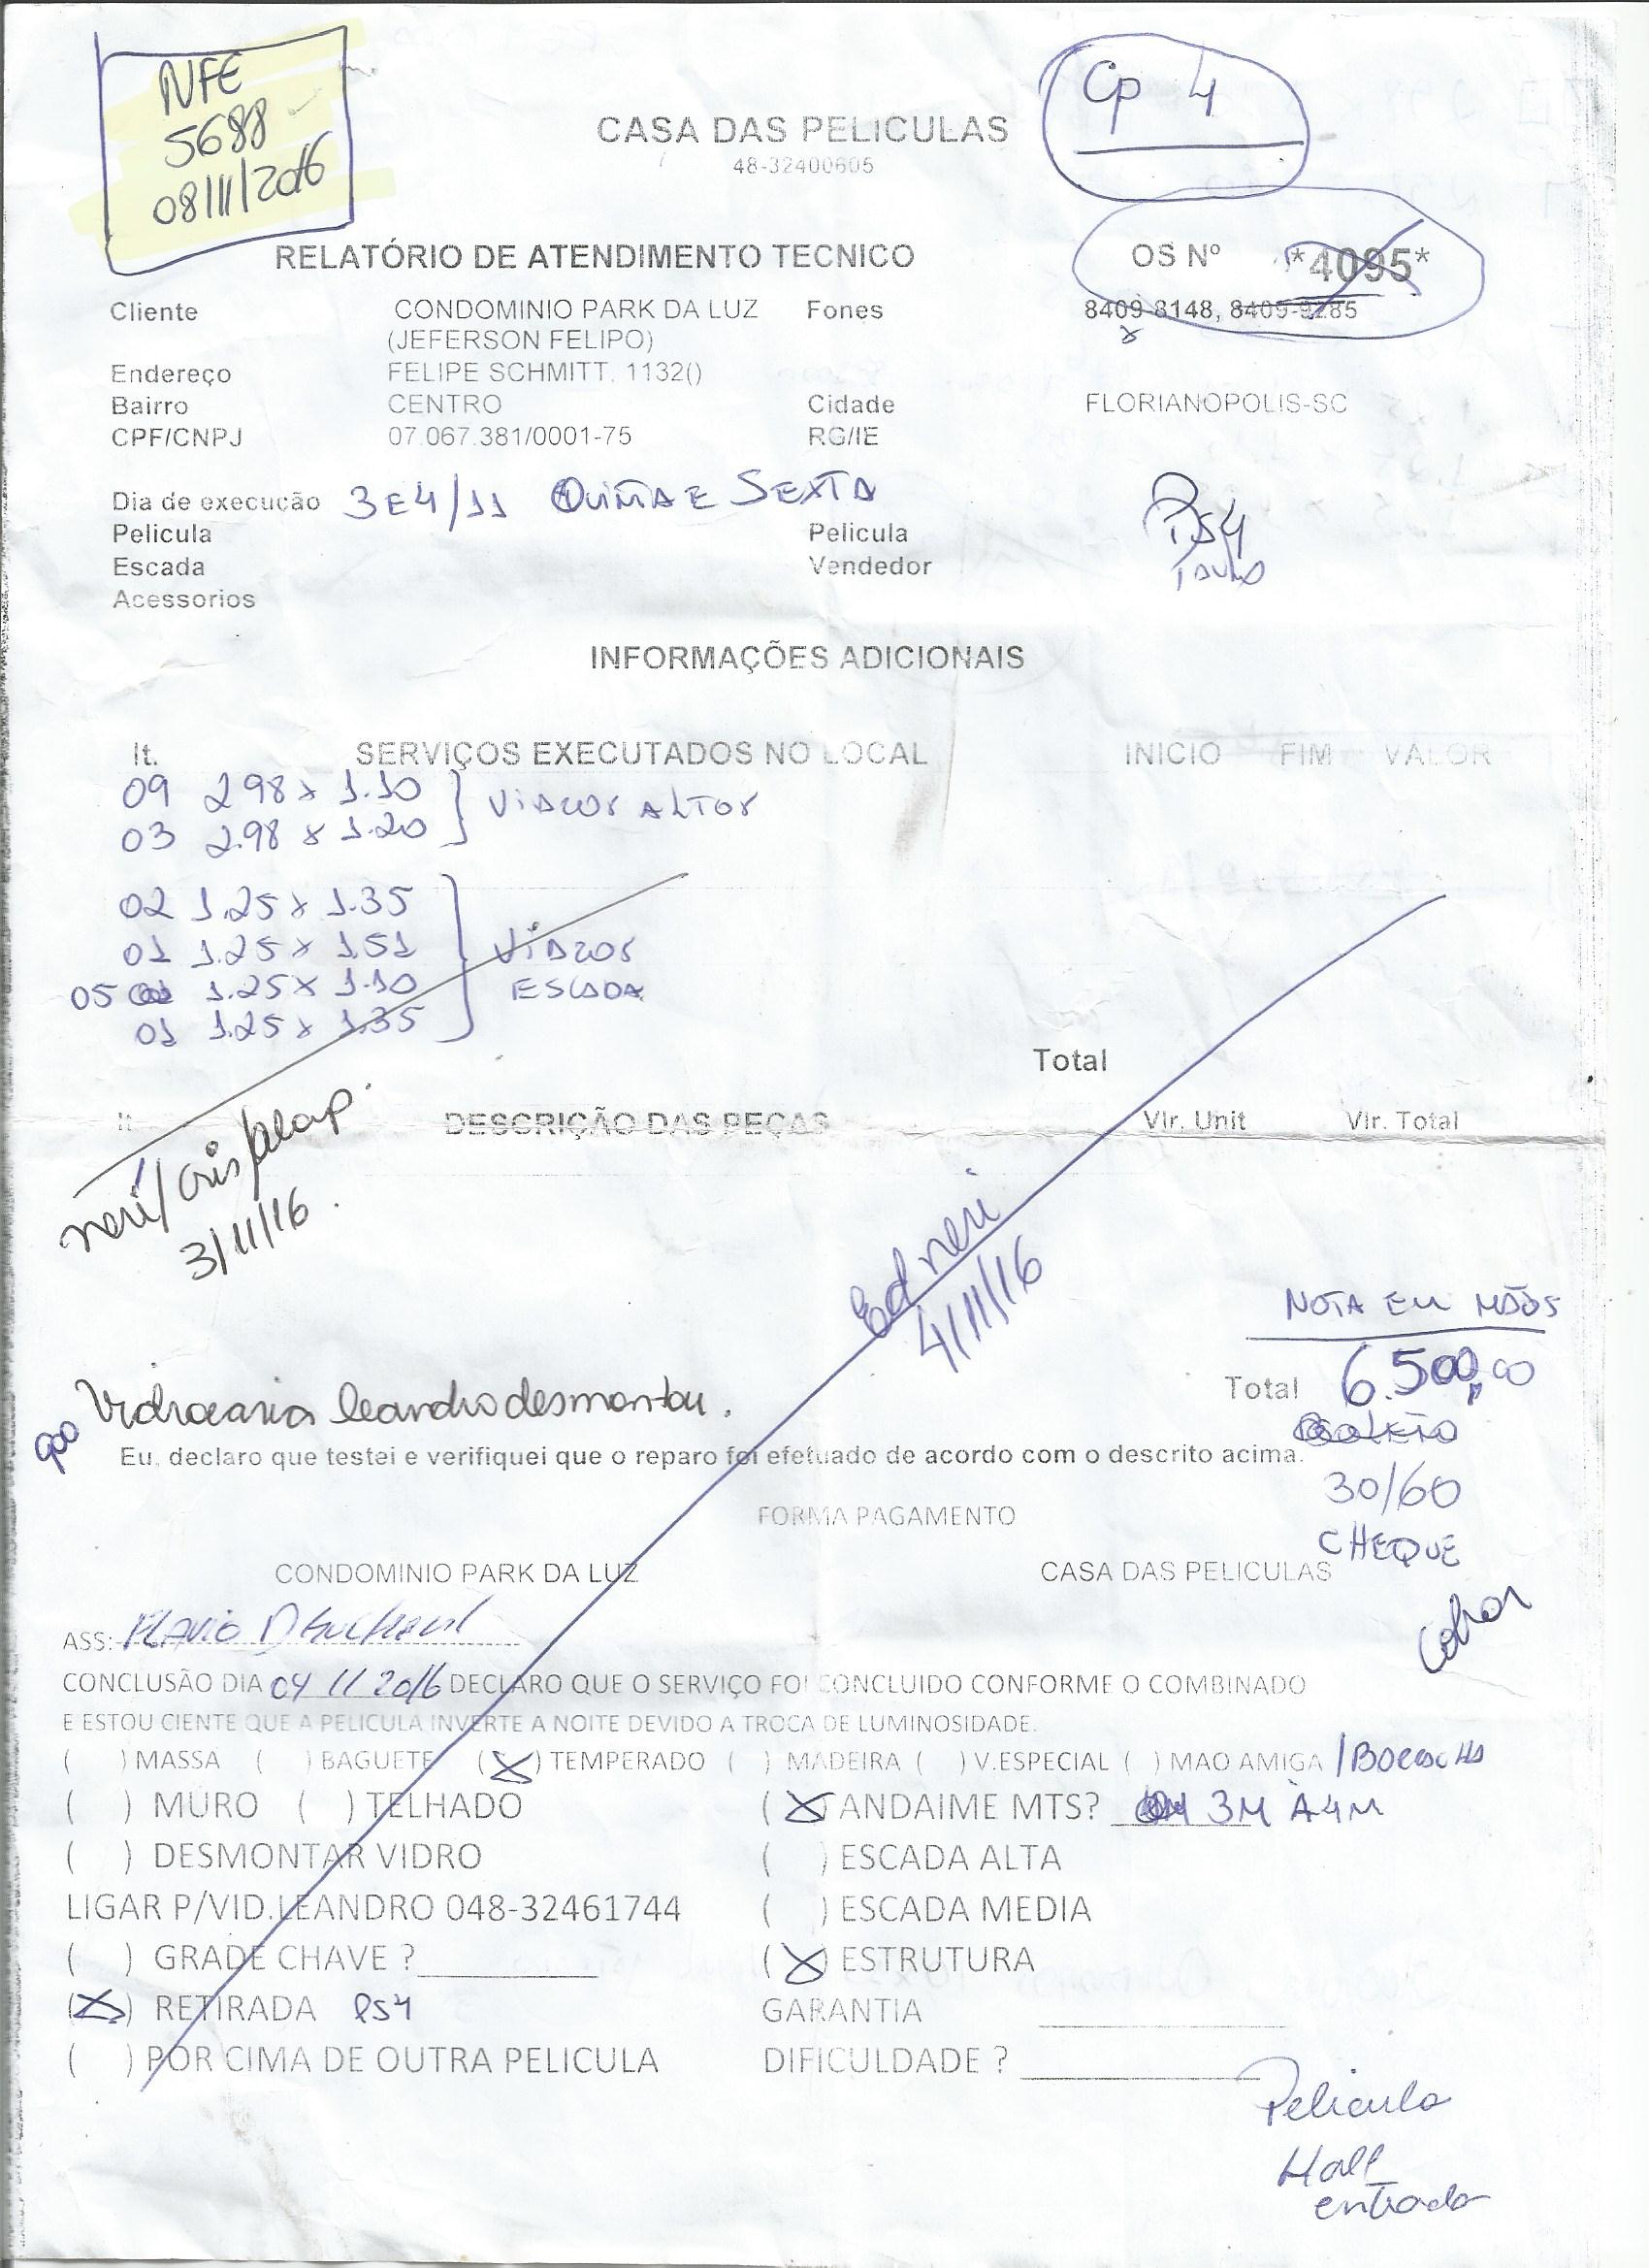 NFE
5688
08/11/2016
Cp 4
CASA DAS PELICULAS
48-32400605
RELATÓRIO DE ATENDIMENTO TECNICO OS Nº *4095*
Cliente CONDOMINIO PARK DA LUZ Fones 8409-8148, 8409-9285
(JEFERSON FELIPO)
Endereço FELIPE SCHMITT, 1132()
Bairro CENTRO Cidade FLORIANOPOLIS-SC
CPF/CNPJ 07.067.381/0001-75 RG/IE
Dia de execução 3 E 4/11 QUINTA E SEXTA
Pelicula Pelicula PS4
Escada Vendedor PAULO
Acessorios
INFORMAÇÕES ADICIONAIS
It. SERVIÇOS EXECUTADOS NO LOCAL INICIO FIM VALOR
09 2.98 x 1.10
03 2.98 x 1.20
VIDROS ALTOS
02 1.25 x 1.35
01 1.25 x 1.51
05 1.25 x 1.10
01 1.25 x 1.35
VIDROS
ESCADA
Total
It DESCRIÇÃO DAS PEÇAS Vlr. Unit Vlr. Total
neri/cris/
3/11/16
Ed neri
4/11/16
NOTA EM MÃOS
Total 6.500,00
Vidracaria leandro desmontou.
900
BOLETO
Eu, declaro que testei e verifiquei que o reparo foi efetuado de acordo com o descrito acima.
30/60
FORMA PAGAMENTO
CHEQUE
CONDOMINIO PARK DA LUZ CASA DAS PELICULAS
Cobrar
ASS: FLAVIO D
CONCLUSÃO DIA 04 11 2016 DECLARO QUE O SERVIÇO FOI CONCLUIDO CONFORME O COMBINADO
E ESTOU CIENTE QUE A PELICULA INVERTE A NOITE DEVIDO A TROCA DE LUMINOSIDADE.
( ) MASSA ( ) BAGUETE (X) TEMPERADO ( ) MADEIRA ( ) V.ESPECIAL ( ) MAO AMIGA /BORRACHA
( ) MURO ( ) TELHADO (X) ANDAIME MTS? 3M À 4M
( ) DESMONTAR VIDRO ( ) ESCADA ALTA
LIGAR P/VID.LEANDRO 048-32461744 ( ) ESCADA MEDIA
( ) GRADE CHAVE ?__________ (X) ESTRUTURA
(X) RETIRADA PS4 GARANTIA ______________
( ) POR CIMA DE OUTRA PELICULA DIFICULDADE ?______________
Pelicula
Hall
entrada